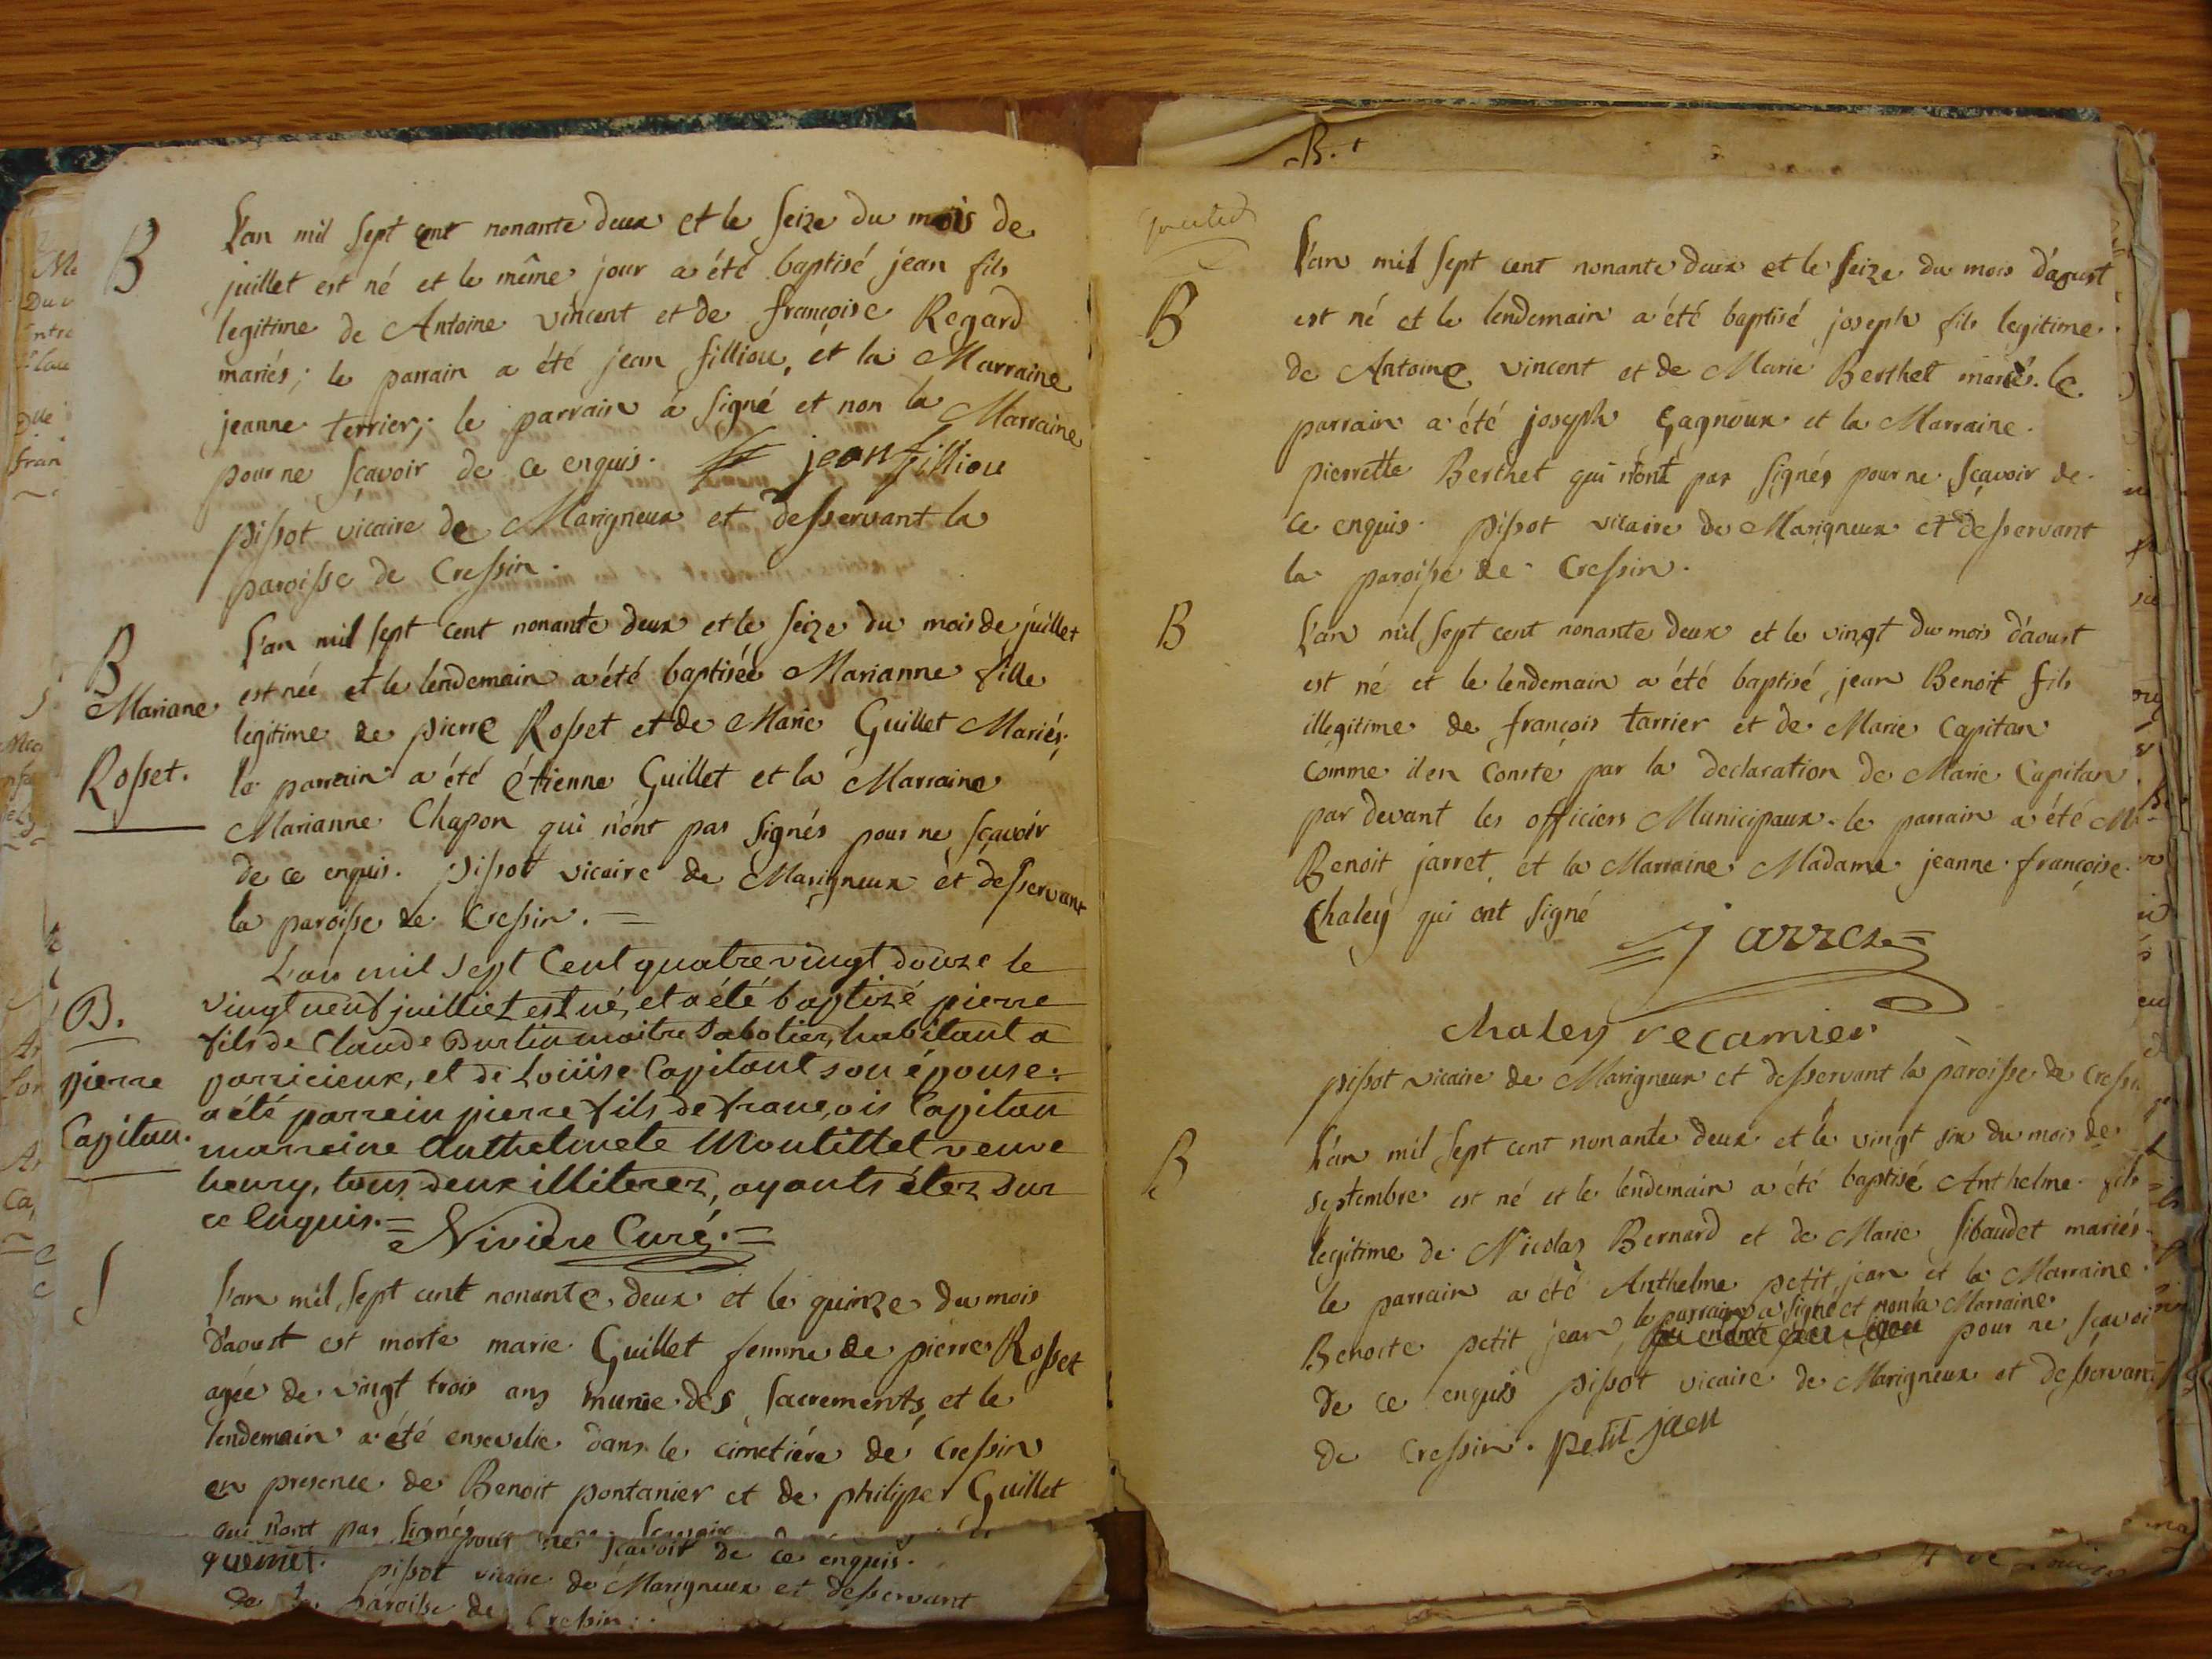 B
L'an mil sept cent nonante deux et le seize du mois de
juillet est né et le même jour a été baptisé jean fils
legitime de Antoine vincent et de françoise Regard
mariés; le parrain a été jean filliou, et la Marraine
jeanne terrier; le parrain a signé et non la Marraine
pour ne sçavoir de ce enquis. jean filliou
pissot vicaire de Marigneux et desservant la
paroisse de Cressin.
B
Mariane
Rosset.
L'an mil sept cent nonante deux et le seize du mois de juillet
est née et le lendemain a été baptisée Marianne fille
legitime de pierre Rosset et de Marie Guillet Mariés;
le parrain a été étienne Guillet et la Marraine
Marianne Chapon qui n'ont pas signés pour ne sçavoir
de ce enquis. pissot vicaire de Marigneux et desservant
la paroisse de Cressin. =
B.
pierre
Capitan.
L'an mil sept Cent quatre vingt douze le
vingt neuf juilliet est né, et a été baptizé pierre
fils de Claude Burtin maitre Sabotier, habitant a
parricieux, et de Loüise Capitant son épouse:
a été parrein pierre fils de francois Capitan
marreine Anthelmete Montittel veuve
henry, tous deux illiterez, ayants étez sur
ce Enquis. = Niviere Curé. =
S
L'an mil sept cent nonante deux et le quinze du mois
d'aoust est morte marie Guillet femme de pierre Rosset
agée de vingt trois ans munie des sacrements et le
lendemain a été ensevelie dans le cimetiére de Cressin
en presence de Benoit pontanier et de philipe Guillet
qui n'ont pas signés pour ne sçavoir de ce enquis.
pissot vicaire de Marigneux et desservant
de la paroisse de Cressin.
B.t
B
L'an mil sept cent nonante deux et le seize du mois d'aoust
est né et le lendemain a été baptisé joseph fils legitime
de Antoine vincent et de Marie Berthet mariés. le
parrain a été joseph Gagnoux et la Marraine
pierrette Berthet qui n'ont pas signés pour ne sçavoir de
ce enquis. pissot vicaire de Marigneux et desservant
la paroisse de Cressin.
B
L'an mil sept cent nonante deux et le vingt du mois d'aoust
est né et le lendemain a été baptisé jean Benoit fils
illegitime de françois tarrier et de Marie Capitan
comme il en conste par la declaration de Marie Capitan
par devant les officiers Municipaux. le parrain a été Mr
Benoit jarret, et la Marraine Madame jeanne françoise
Chaley qui ont signé
Jarret
chaley recamier
pissot vicaire de Marigneux et desservant la paroisse de Cressin
B
L'an mil sept cent nonante deux et le vingt six du mois de
septembre est né et le lendemain a été baptisé Anthelme fils
legitime de Nicolas Bernard et de Marie Sibaudet mariés
le parrain a été Anthelme petit jean et la Marraine
le parrain a signé et non la Marraine
Benoite petit jean, pour ne sçavoir
de ce enquis pissot vicaire de Marigneux et desservant
de Cressin. petit jaen